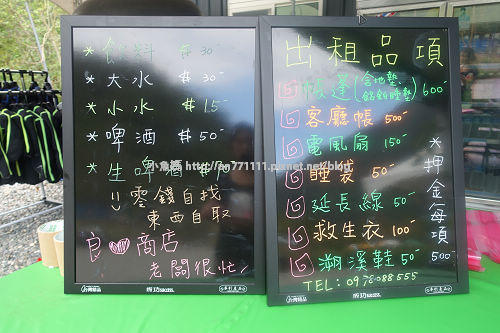 *飲料 $30-
*大水 $30-
*小水 $15-
*啤酒 $50-
*生啤酒
零錢自找
東西自取
良♥商店
老闆很忙!
出租品項
帳蓬(含地墊、鋁箔睡墊) 600-
客廳帳 500-
電風扇 150-
睡袋 50-
延長線 50-
救生衣 100-
溯溪鞋 50-
*押金每項500-
TEL:0978088555
小魚酒 http://an771111.pixnet.net/blog